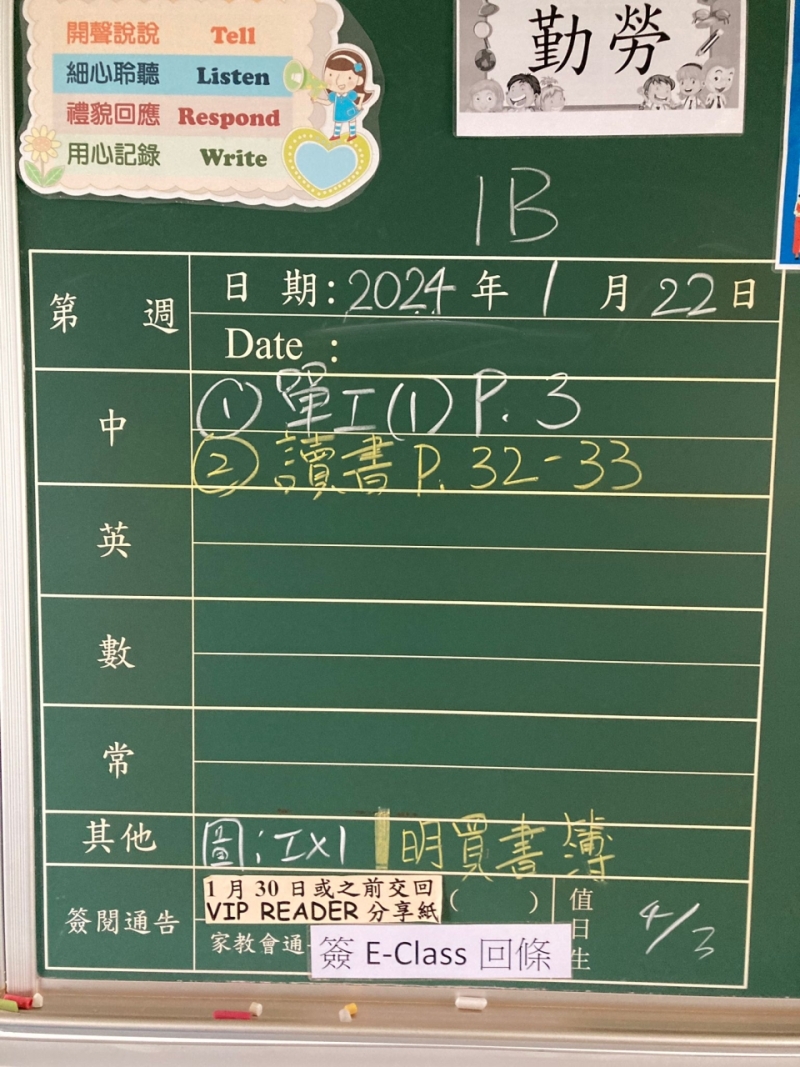 開聲說說 Tell
細心聆聽 Listen
禮貌回應 Respond
用心記錄 Write
勤勞
1B
第 週
日期:2024年1月22日
Date :
中
① 單工(1) P.3
② 讀書 P. 32-33
英
數
常
其他
圖:工x1 明買書簿
簽閱通告
1月30日或之前交回
VIP READER 分享紙
( )
家教會通
簽 E-Class 回條
值日生
4/3